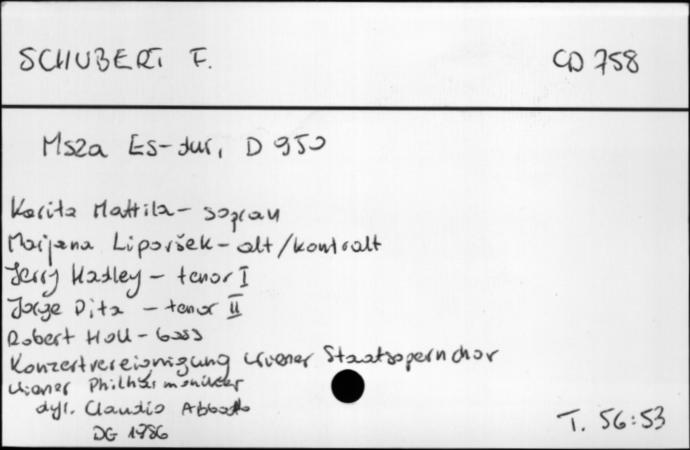 SCHUBERT F. CD 758
Msza Es-dur, D 950
Karita Mattila - sopran
Marjana Lipovšek - alt/kontralt
Jerry Hadley - tenor I
Jorge Pita - tenor II
Robert Holl - bass
Konzertvereinigung Wiener Staatsopernchor
Wiener Philharmoniker
dyr. Claudio Abbado
DG 1986
T. 56:53